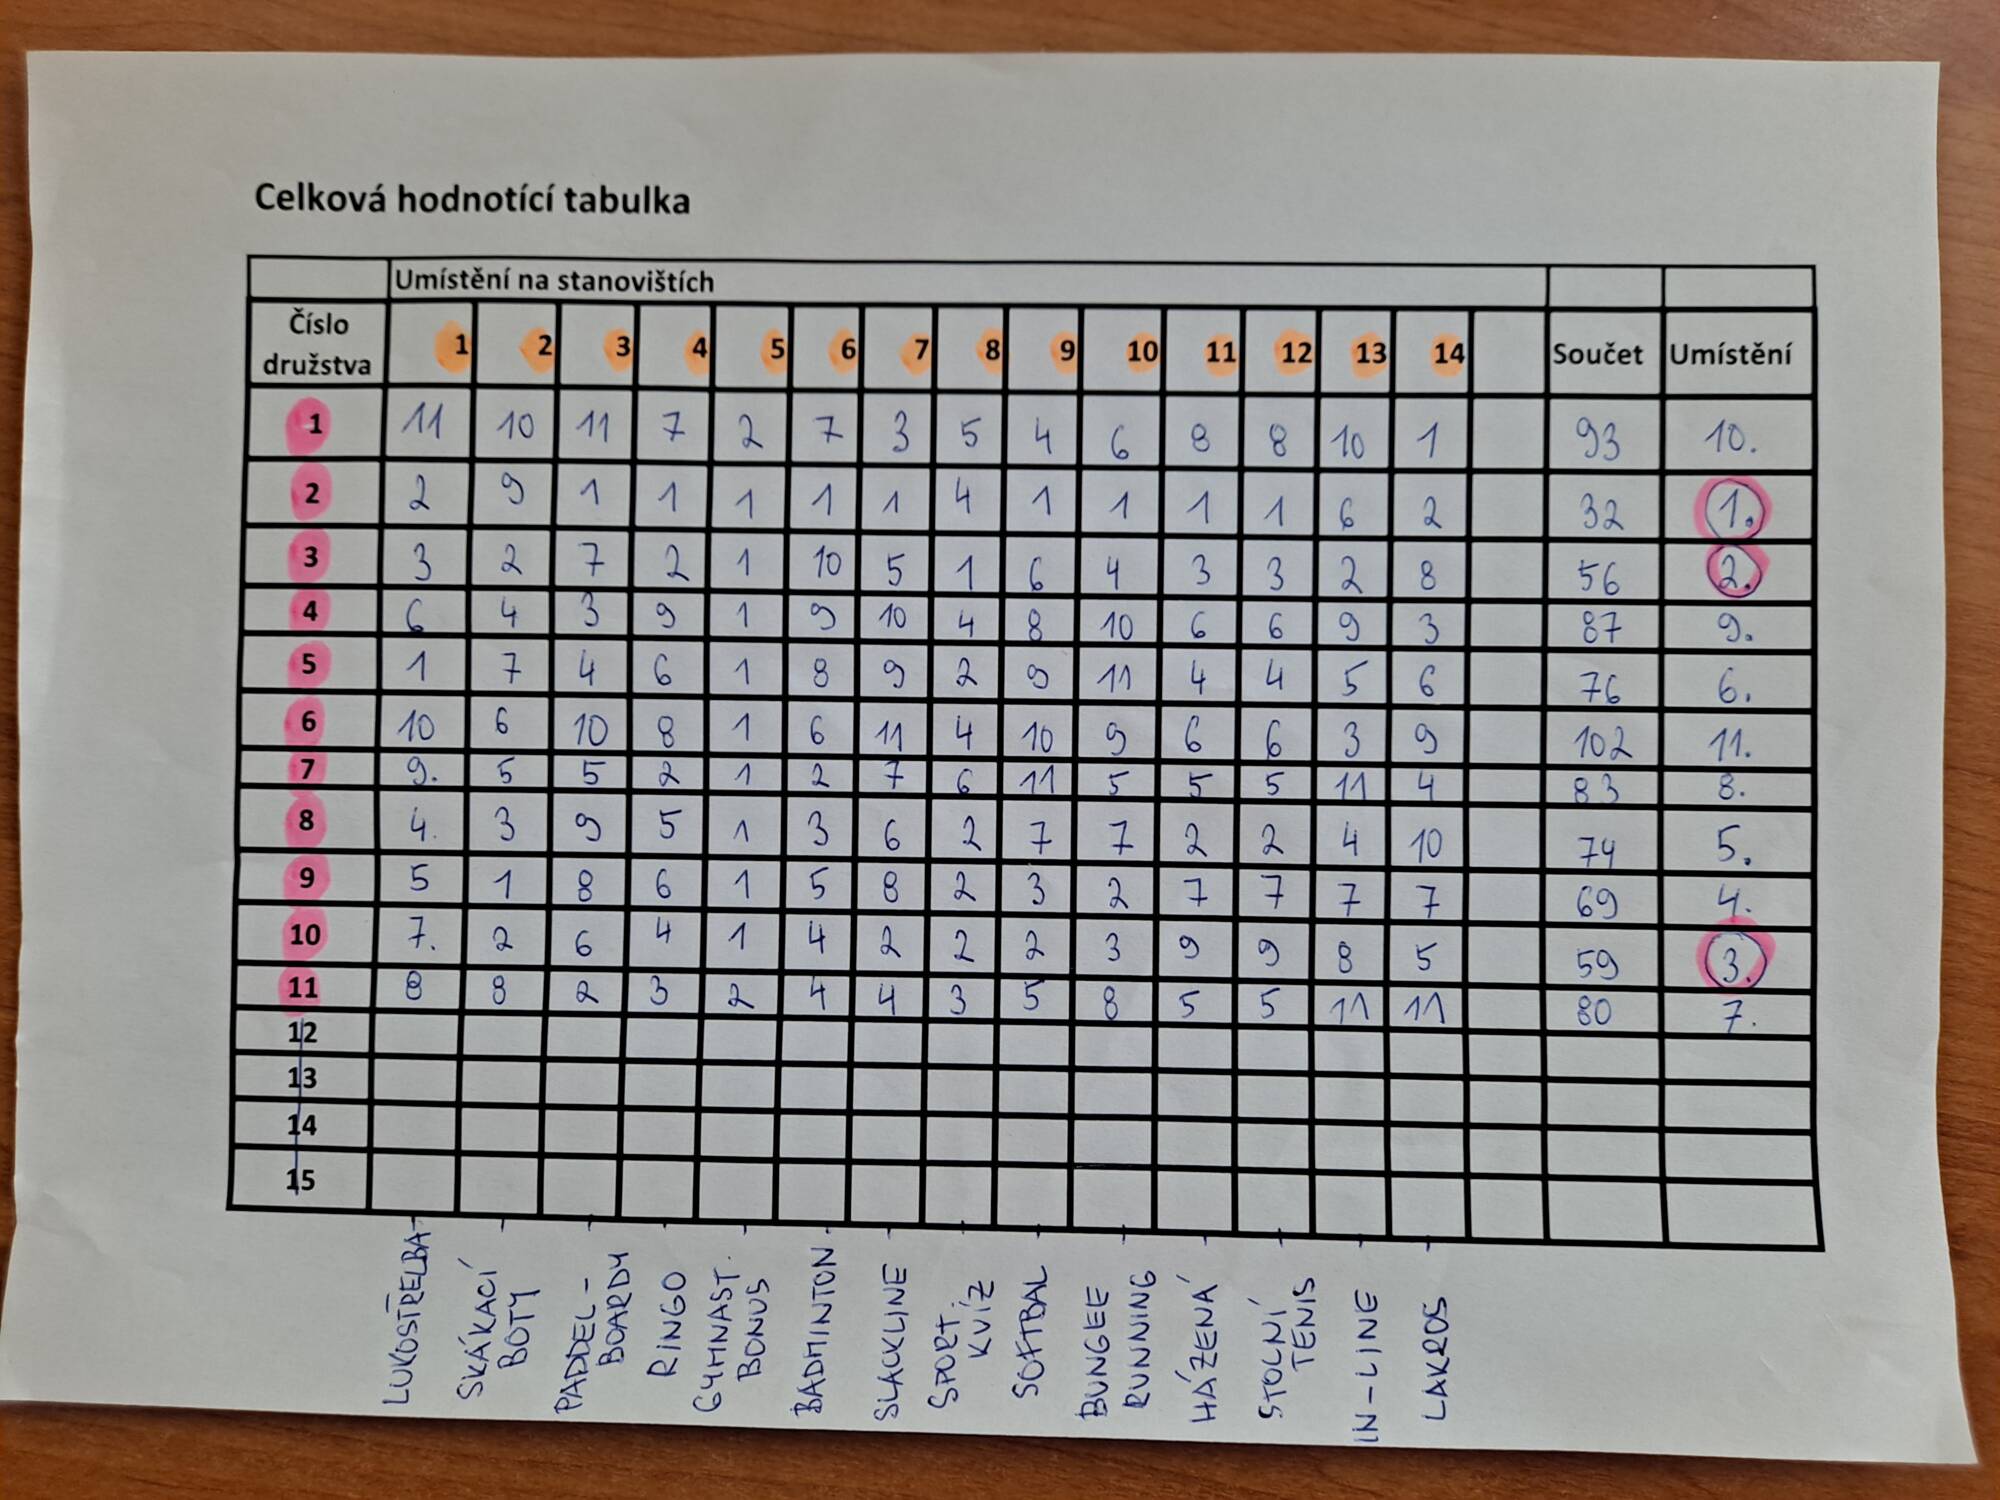 Celková hodnotící tabulka
Umístění na stanovištích
Číslo družstva 1 2 3 4 5 6 7 8 9 10 11 12 13 14 Součet Umístění
1 11 10 11 7 2 7 3 5 4 6 8 8 10 1 93 10.
2 2 9 1 1 1 1 1 4 1 1 1 1 6 2 32 1.
3 3 2 7 2 1 10 5 1 6 4 3 3 2 8 56 2.
4 6 4 3 9 1 9 10 4 8 10 6 6 9 3 87 9.
5 1 7 4 6 1 8 9 2 9 11 4 4 5 6 76 6.
6 10 6 10 8 1 6 11 4 10 9 6 6 3 9 102 11.
7 9. 5 5 2 1 2 7 6 11 5 5 5 11 4 83 8.
8 4. 3 9 5 1 3 6 2 7 7 2 2 4 10 74 5.
9 5 1 8 6 1 5 8 2 3 2 7 7 7 7 69 4.
10 7. 2 6 4 1 4 2 2 2 3 9 9 8 5 59 3.
11 8 8 2 3 2 4 4 3 5 8 5 5 11 11 80 7.
12
13
14
15
LUKOSTŘELBA
SKÁKACÍ
BOTY
PADDEL-
BOARDY
RINGO
GYMNAST.
BONUS
BADMINTON
SLACKLINE
SPORT.
KVÍZ
SOFTBAL
BUNGEE
RUNNING
HÁZENÁ
STOLNÍ
TENIS
IN-LINE
LAKROS